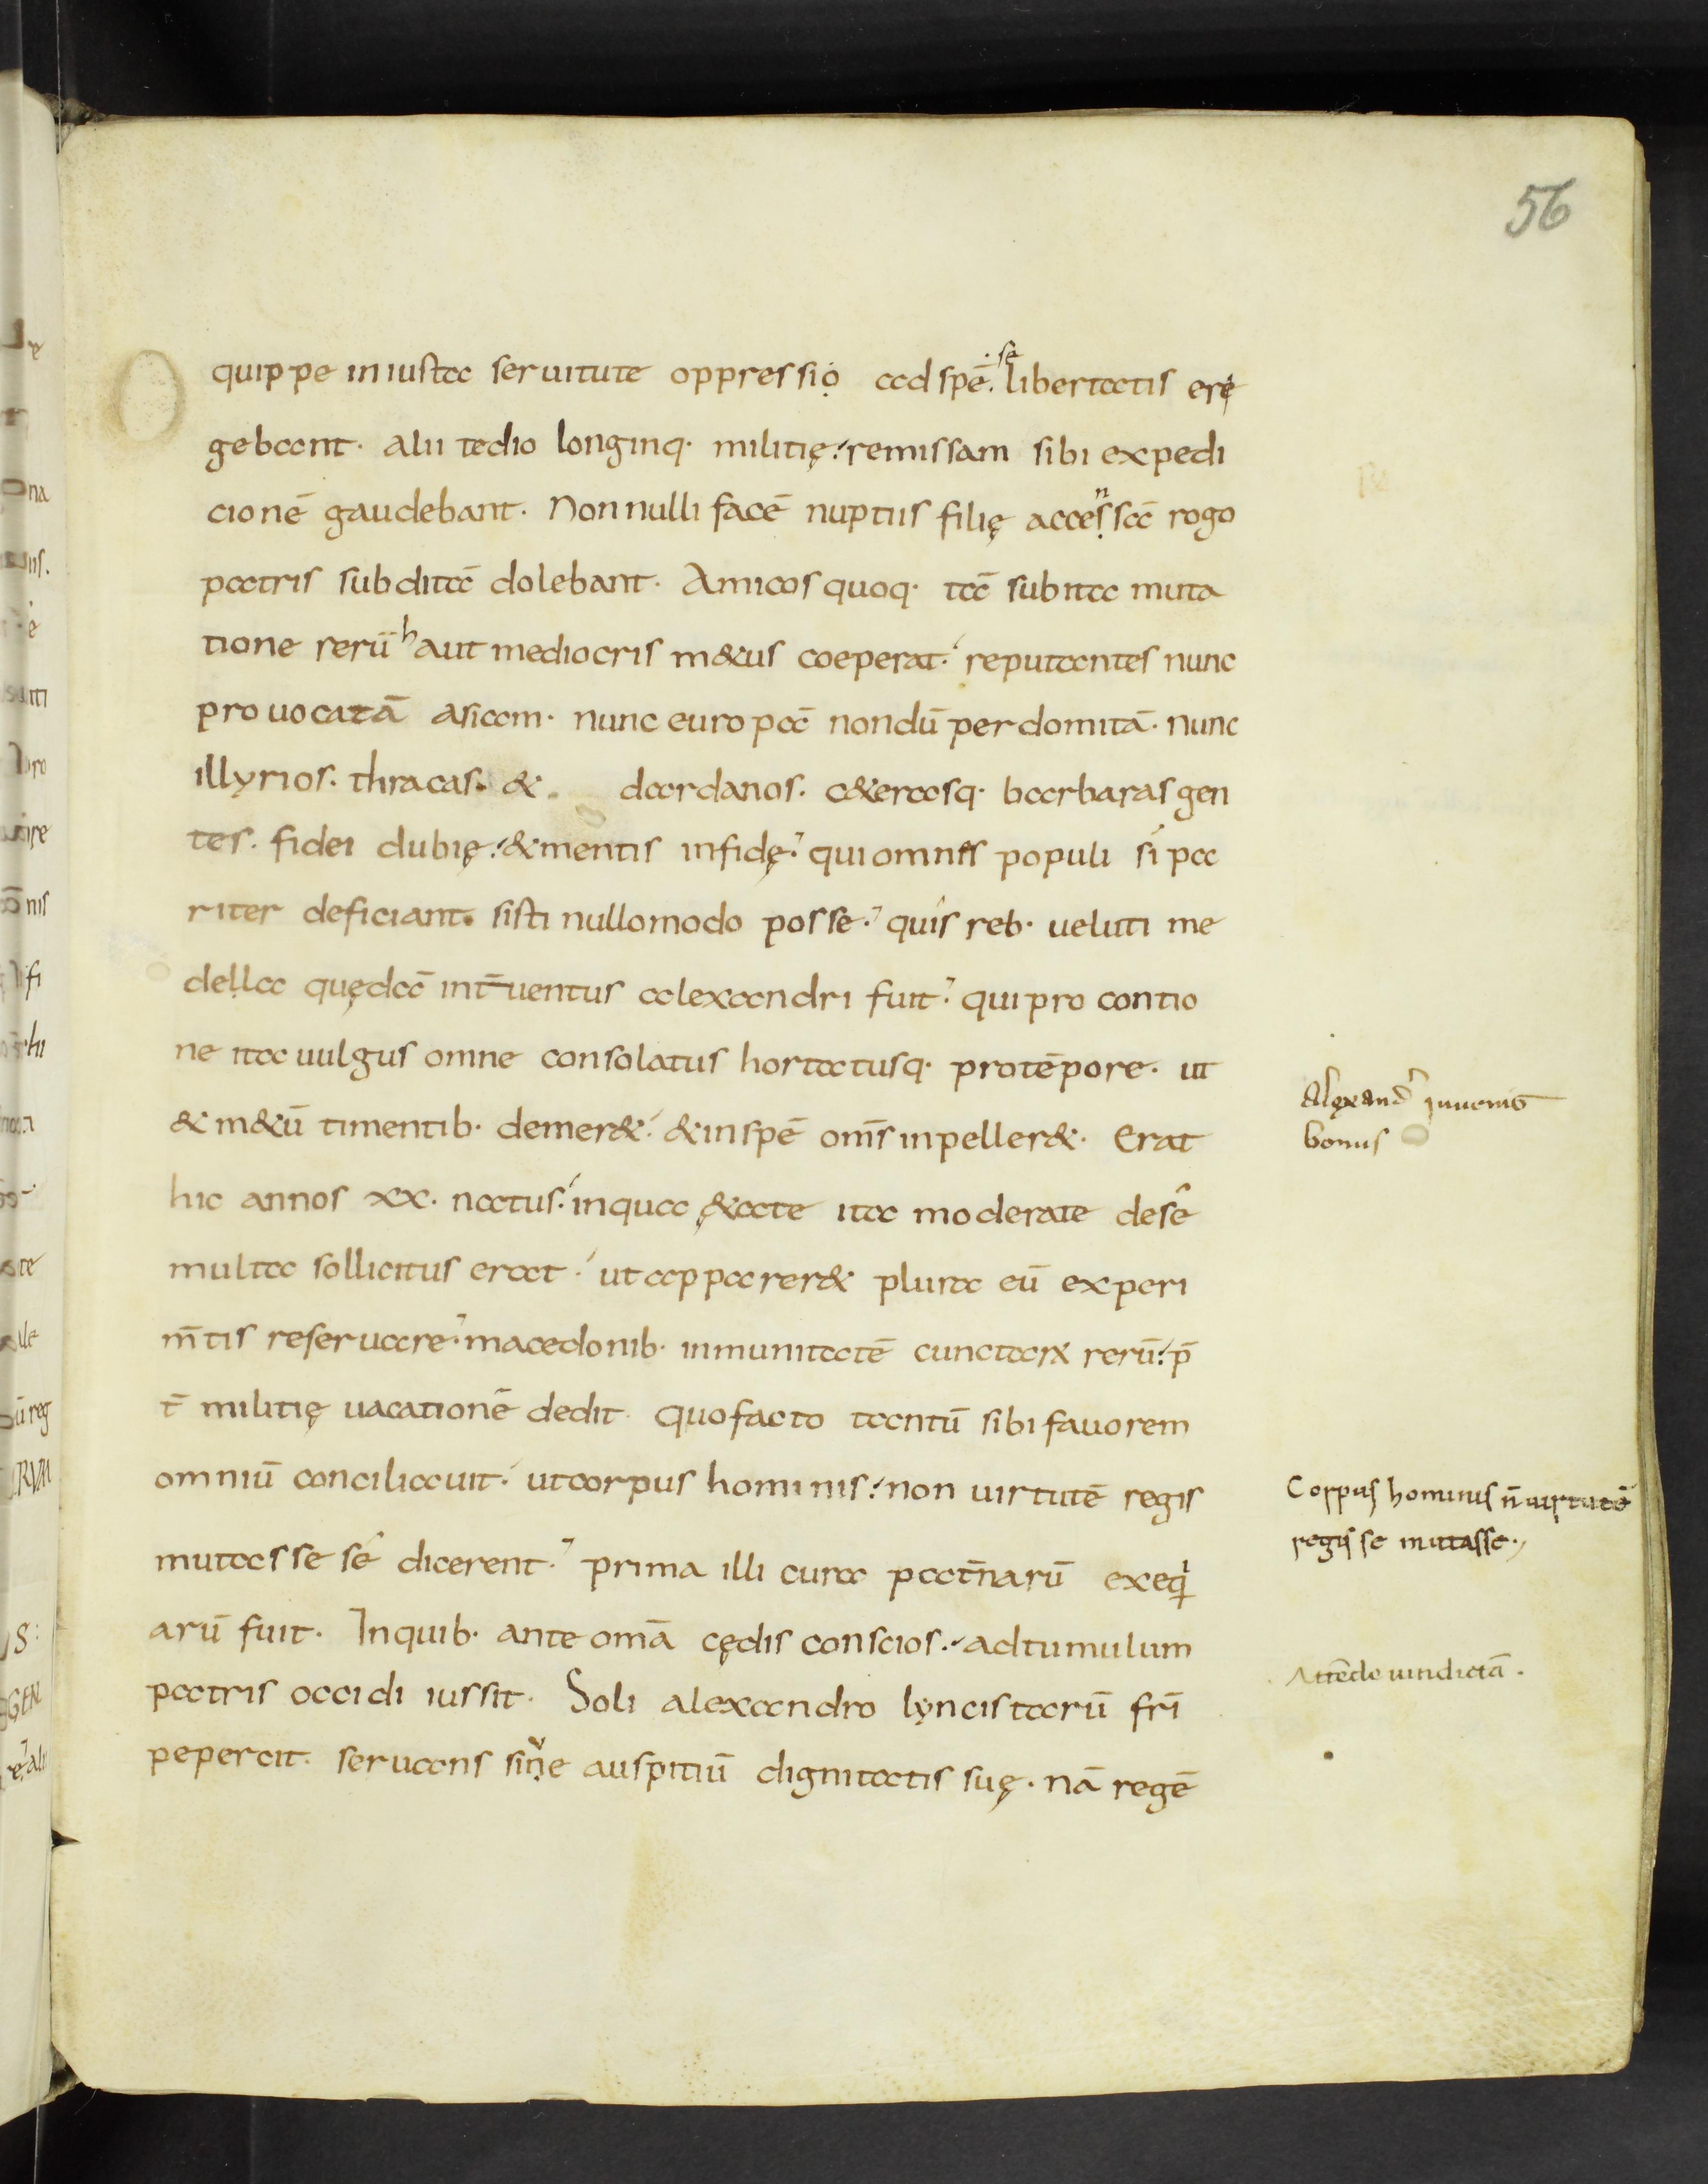 56
quippe iniusta seruitute oppressi ad spē se libertatis eri
gebant. alii tedio longinq· militię remissam sibi expedi
cionē gaudebant. Nonnulli facē nuptiis filię accensā rogo
patris subditā dolebant. Amicos quoq· tā subita muta
tione rerū haut mediocris m&us coeperat. reputantes nunc
prouocatā asiam. nunc europā nondū perdomitā. nunc
illyrios. thracas. & dardanos. c&erasq· barbaras gen
tes. fidei dubię. & mentis infidę. qui omnes populi si pa
riter deficiant. sisti nullomodo posse. quis reb· ueluti me
della quędā int̄uentus alexandri fuit. qui pro contio
ne ita uulgus omne consolatus hortatusq· pro tēpore. ut
& m&ū timentib· demer& & in spē om̄s inpeller&. Erat
hic annos xx. natus. in qua &ate ita moderate de se
multa sollicitus erat. ut apparer& plura eū experi
m̄tis reseruare. macedonib· inmunitatē cunctarū rerū. p̄
t̄ militię uacationē dedit. quo facto tantū sibi fauorem
omniū conciliauit. ut corpus hominis. non uirtutē regis
mutasse se dicerent. prima illi cura pat̄narū exeqi
arū fuit. In quib· ante om̄a cędis conscios. ad tumulum
patris occidi iussit. Soli alexandro lyncistarū fr̄i
pepercit. seruans in eo auspitiū dignitatis suę. nā regē
Alexand' iuuenis
bonus
Corpus hominis n̄ uirtutē
regis se mutasse.
Attēde uindictā.